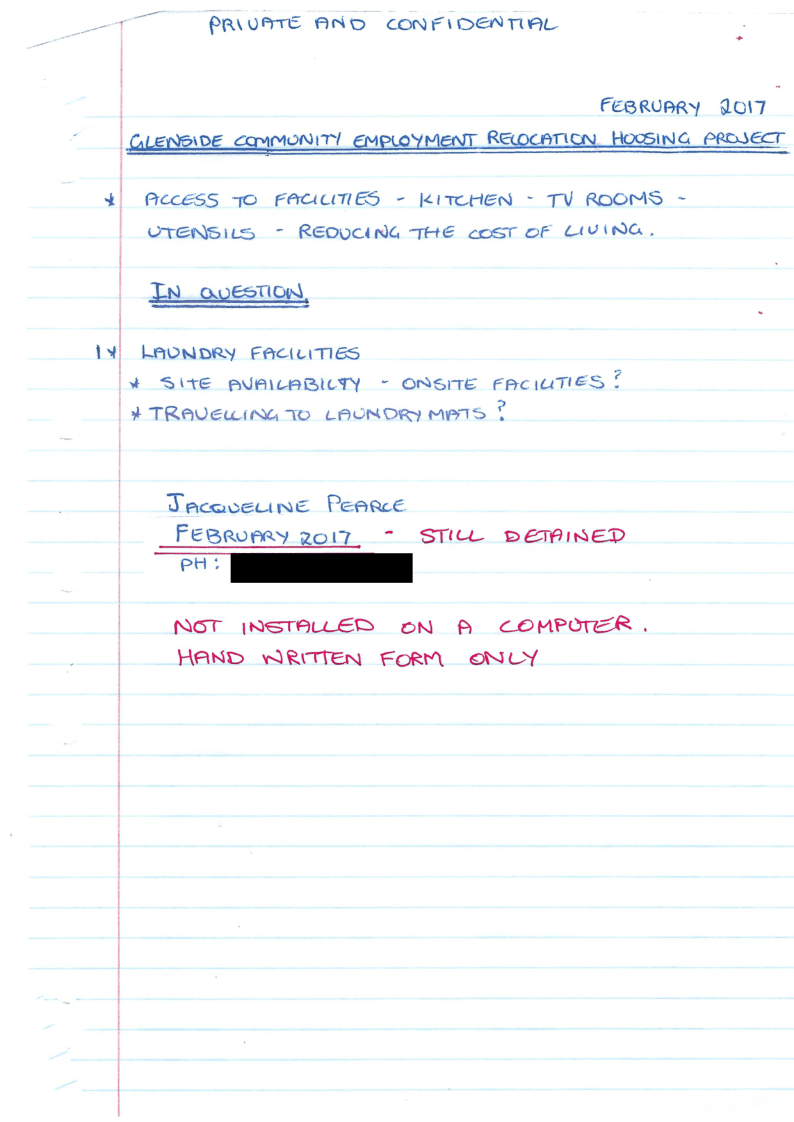 PRIVATE AND CONFIDENTIAL
FEBRUARY 2017
GLENSIDE COMMUNITY EMPLOYMENT RELOCATION HOUSING PROJECT
* ACCESS TO FACILITIES - KITCHEN - TV ROOMS -
UTENSILS - REDUCING THE COST OF LIVING.
IN QUESTION,
1* LAUNDRY FACILITIES
* SITE AVAILABILTY - ONSITE FACILITIES?
* TRAVELLING TO LAUNDRY MATS?
JACQUELINE PEARCE
FEBRUARY 2017 - STILL DETAINED
PH:
NOT INSTALLED ON A COMPUTER.
HAND WRITTEN FORM ONLY